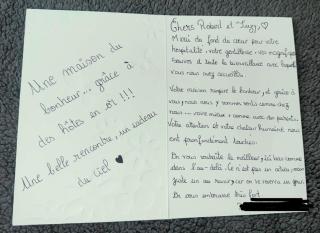 Une maison du
bonheur... grâce à
des hôtes en or !!!
Une belle rencontre, un cadeau
du ciel
Chers Robert et Suzy,
Merci du fond du cœur pour votre
hospitalité, votre gentillesse, vos magnifiques
et toute la bienveillance avec laquelle
vous nous avez accueillis.
Votre maison respire le bonheur, et grâce à
vous, nous nous y sommes sentis comme chez
nous... voire mieux, comme avec des parents.
Votre attention et votre chaleur humaine nous
ont profondément touchés.
On vous souhaite le meilleur, ici bas comme
dans l'au-delà. Ce n'est pas un adieu, mais
juste un au revoir, car on se reverra un jour.
On vous embrasse très fort.